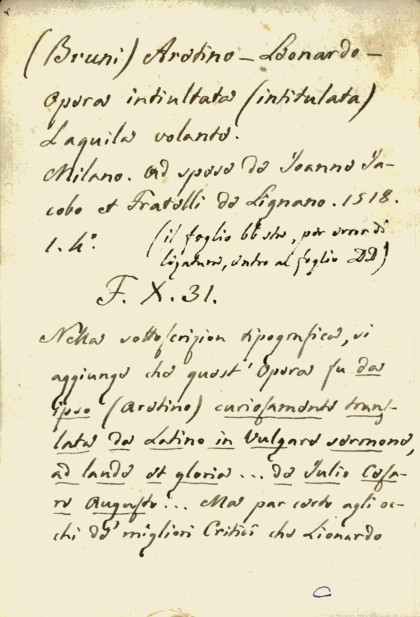 (Bruni) Aretino - Leonardo -
Opera intiultata (intitulata)
Laquila volante.
Milano. Ad spese de Joanno Ja-
cobo et Fratelli de Lignano. 1518.
1. h.º (il foglio bb sta, per error di
ligatura, entro al foglio DD)
F. X. 31.
Nella sottoscrizion tipografica, si
aggiunge che quest' Opera fu da
ipso (Aretino) curiosamente trans-
lata de Latino in Vulgare sermone,
ad laude et gloria ... de Iulio Cesa-
re Augusto ... Ma par certo agli oc-
chi de' migliori Critici che Lionardo